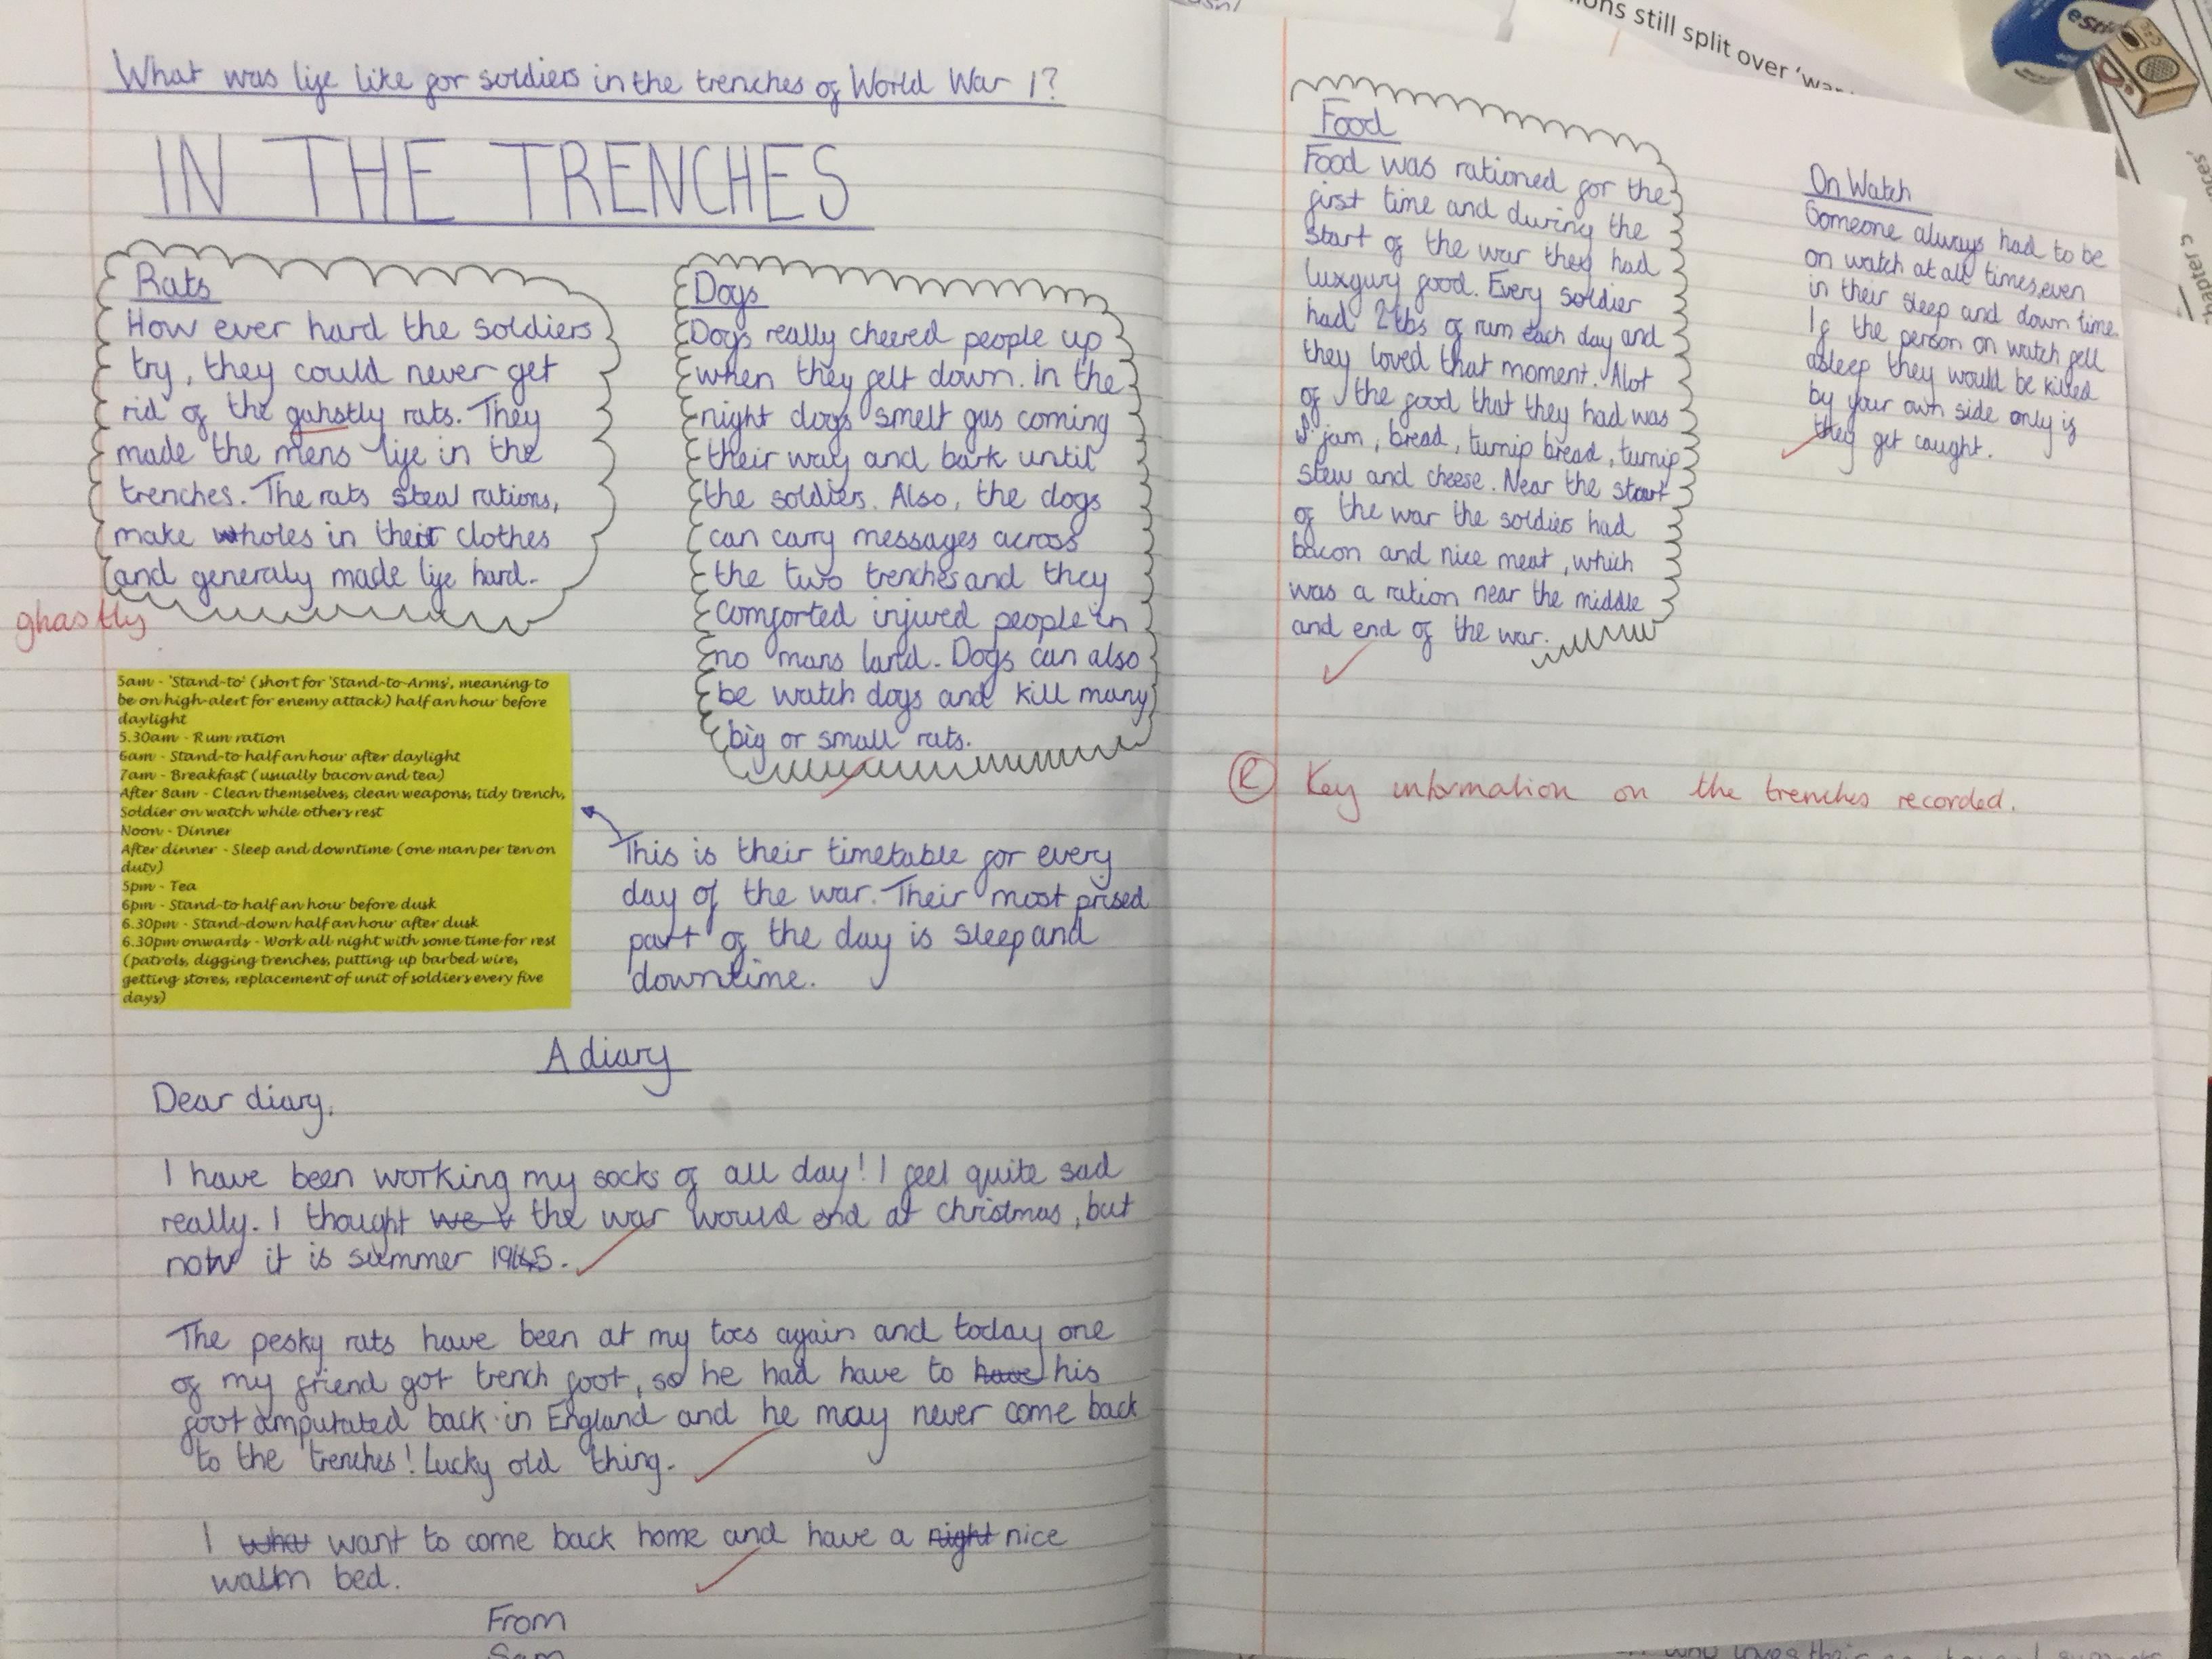 What was life like for soldiers in the trenches of World War 1?
IN THE TRENCHES
Rats
How ever hard the soldiers
try, they could never get
rid of the gahstly rats. They
made the mens life in the
trenches. The rats steal rations,
make wholes in their clothes
and generaly made life hard.
ghastly
Dogs
Dogs really cheered people up
when they felt down. In the
night dogs smelt gas coming
their way and bark until
the soldiers. Also, the dogs
can carry messages across
the two trenches and they
comforted injured people in
no mans land. Dogs can also
be watch dogs and kill many
big or small rats.
5am - 'Stand-to' (short for 'Stand-to-Arms', meaning to
be on high-alert for enemy attack) half an hour before
daylight
5.30am - Rum ration
6am - Stand-to half an hour after daylight
7am - Breakfast (usually bacon and tea)
After 8am - Clean themselves, clean weapons, tidy trench,
Soldier on watch while others rest
Noon - Dinner
After dinner - Sleep and downtime (one man per ten on
duty)
5pm - Tea
6pm - Stand-to half an hour before dusk
6.30pm - Stand-down half an hour after dusk
6.30pm onwards - Work all night with some time for rest
(patrols, digging trenches, putting up barbed wire,
getting stores, replacement of unit of soldiers every five
days)
This is their timetable for every
day of the war. Their most prised
part of the day is sleep and
downtime.
A diary
Dear diary,
I have been working my socks of all day! I feel quite sad
really. I thought we t the war would end at christmas, but
now it is summer 1945.
The pesky rats have been at my toes again and today one
of my friend got trench foot, so he had have to have his
foot amputated back in England and he may never come back
to the trenches! Lucky old thing.
I what want to come back home and have a night nice
warm bed.
From
Sam
Food
Food was rationed for the
first time and during the
start of the war they had
luxgury food. Every soldier
had 2 tbs of rum each day and
they loved that moment. Alot
of the food that they had was
jam, bread, turnip bread, turnip
stew and cheese. Near the start
of the war the soldiers had
bacon and nice meat, which
was a ration near the middle
and end of the war.
On Watch
Someone always had to be
on watch at all times, even
in their sleep and down time.
If the person on watch fell
asleep they would be killed
by your own side only if
they get caught.
R Key information on the trenches recorded.
ons still split over 'war